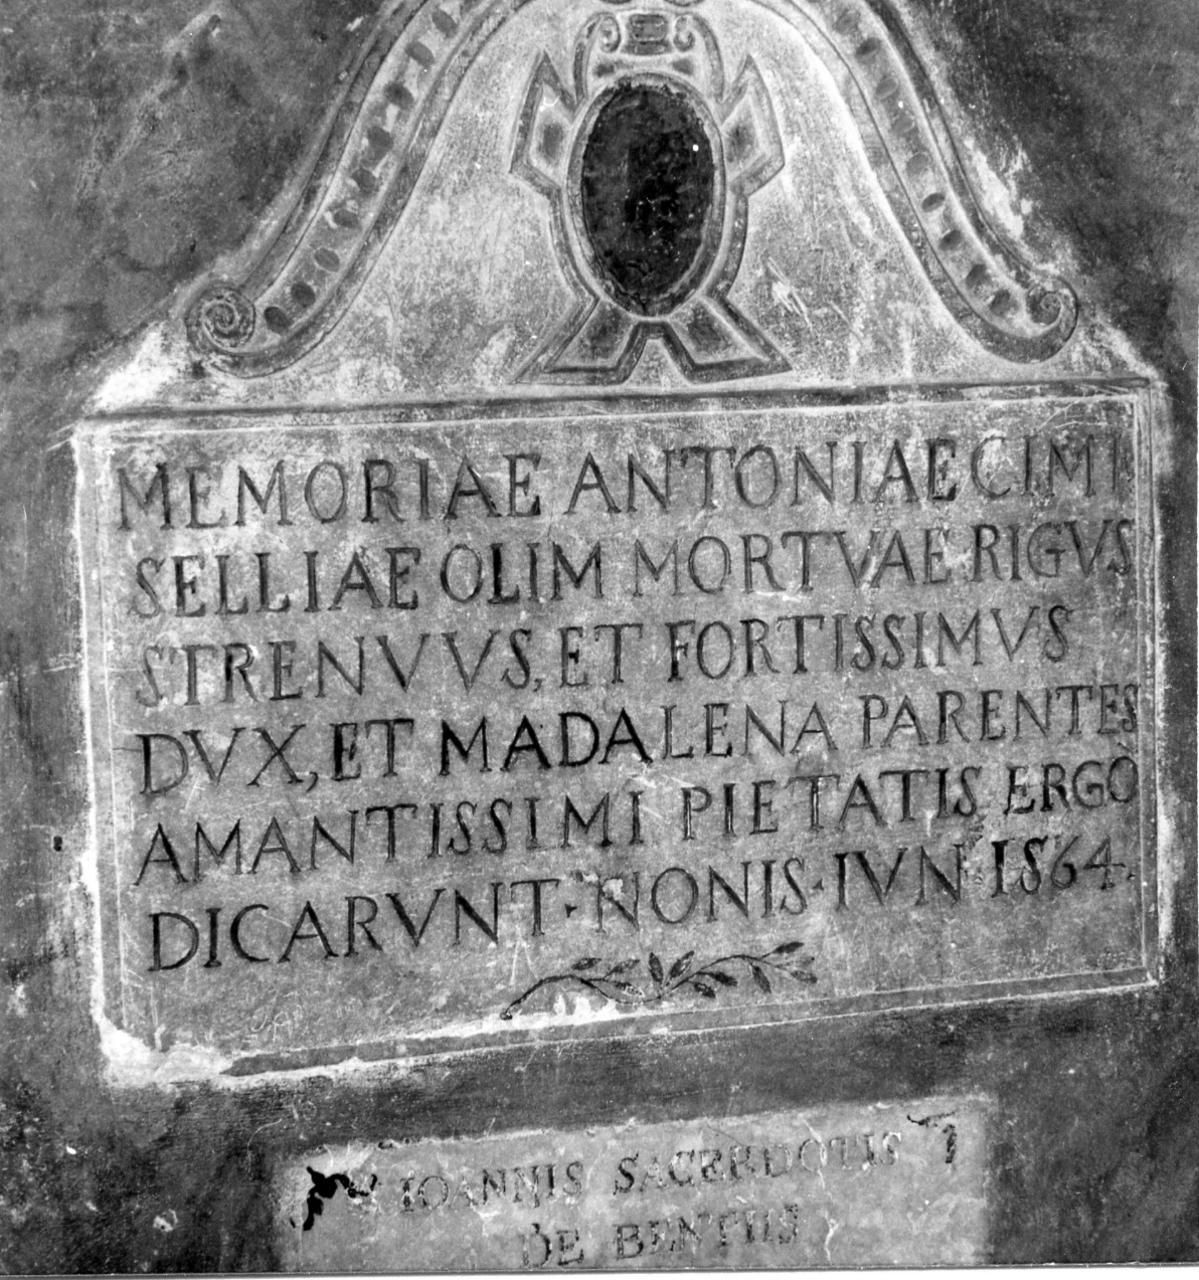 MEMORIAE ANTONIAE CIMI
SELLIAE OLIM MORTVAE RIGVS
STRENVVS, ET FORTISSIMVS
DVX, ET MADALENA PARENTES
AMANTISSIMI PIETATIS ERGO
DICARVNT · NONIS · IVN · 1564 .
IOANNIS SACERDOTIS
DE BENTIIS